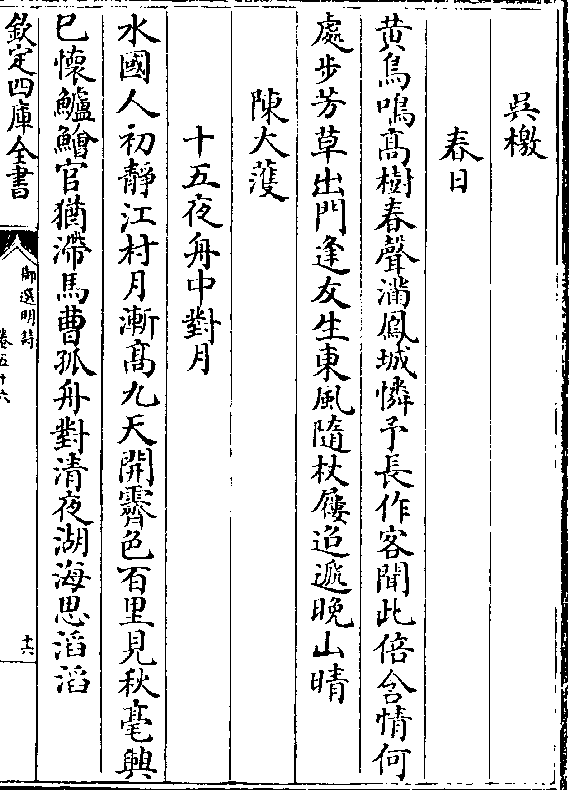 吳檄
春日
黄鳥鳴髙樹春聲滿鳳城憐予長作客聞此倍含情何
處步芳草出門逢友生東風隨杖屨迢遞晚山晴
陳大濩
十五夜舟中對月
水國人初靜江村月漸髙九天開霽色百里見秋毫興
已懷鱸鱠官猶滯馬曹孤舟對清夜湖海思滔滔
欽定四庫全書
御選明詩
卷五十六
十六